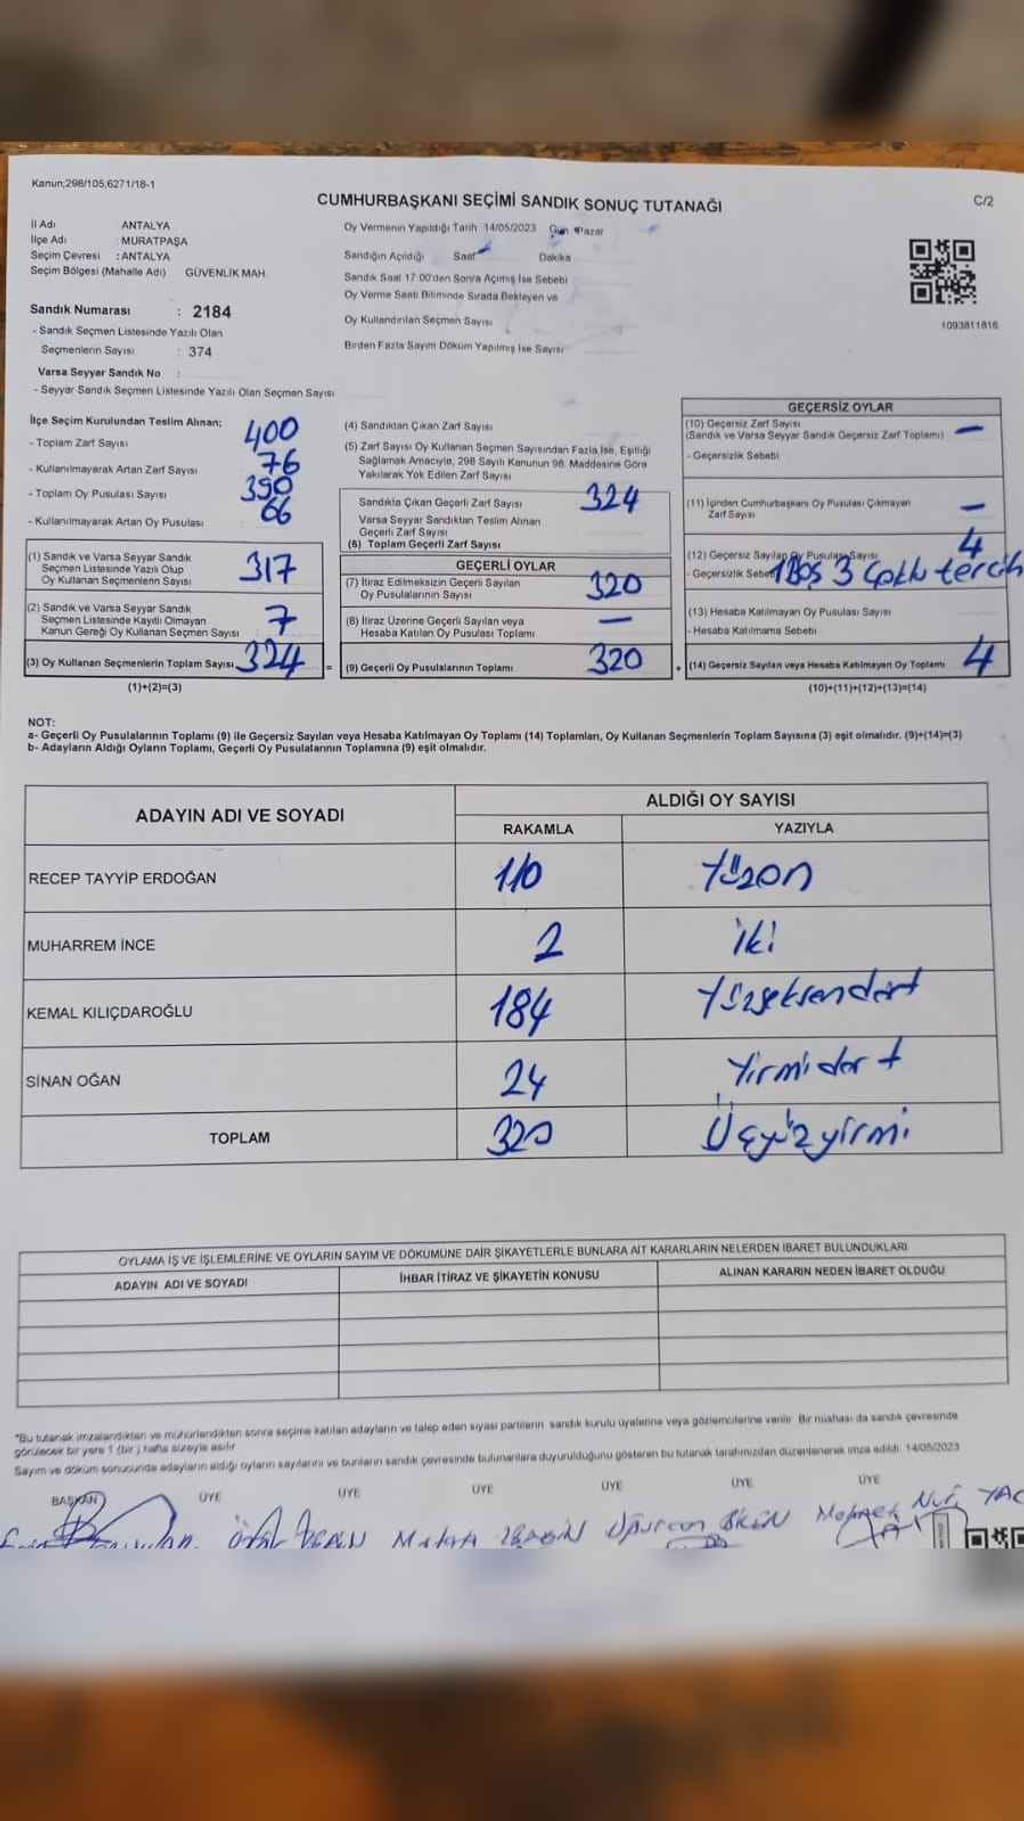 Kanun;298/105,6271/18-1
CUMHURBAŞKANI SEÇİMİ SANDIK SONUÇ TUTANAĞI
C/2
İl Adı ANTALYA
İlçe Adı : MURATPAŞA
Seçim Çevresi : ANTALYA
Seçim Bölgesi (Mahalle Adı) GÜVENLİK MAH.
Sandık Numarası : 2184
- Sandık Seçmen Listesinde Yazılı Olan
Seçmenlerin Sayısı : 374
Varsa Seyyar Sandık No :
- Seyyar Sandık Seçmen Listesinde Yazılı Olan Seçmen Sayısı
Oy Vermenin Yapıldığı Tarih 14/05/2023 Gün Pazar
Sandığın Açıldığı Saat Dakika
Sandık Saat 17:00'den Sonra Açılmış İse Sebebi
Oy Verme Saati Bitiminde Sırada Bekleyen ve
Oy Kullandırılan Seçmen Sayısı
Birden Fazla Sayım Döküm Yapılmış İse Sayısı
1093811816
İlçe Seçim Kurulundan Teslim Alınan;
- Toplam Zarf Sayısı 400
- Kullanılmayarak Artan Zarf Sayısı 76
- Toplam Oy Pusulası Sayısı 390
- Kullanılmayarak Artan Oy Pusulası 66
(1) Sandık ve Varsa Seyyar Sandık
Seçmen Listesinde Yazılı Olup
Oy Kullanan Seçmenlerin Sayısı 317
(2) Sandık ve Varsa Seyyar Sandık
Seçmen Listesinde Kayıtlı Olmayan
Kanun Gereği Oy Kullanan Seçmen Sayısı 7
(3) Oy Kullanan Seçmenlerin Toplam Sayısı 324 =
(1)+(2)=(3)
(4) Sandıktan Çıkan Zarf Sayısı
(5) Zarf Sayısı Oy Kullanan Seçmen Sayısından Fazla İse, Eşitliği
Sağlamak Amacıyla, 298 Sayılı Kanunun 98. Maddesine Göre
Yakılarak Yok Edilen Zarf Sayısı
Sandıkta Çıkan Geçerli Zarf Sayısı 324
Varsa Seyyar Sandıktan Teslim Alınan
Geçerli Zarf Sayısı
(6) Toplam Geçerli Zarf Sayısı
GEÇERLİ OYLAR
(7) İtiraz Edilmeksizin Geçerli Sayılan
Oy Pusulalarının Sayısı 320
(8) İtiraz Üzerine Geçerli Sayılan veya
Hesaba Katılan Oy Pusulası Toplamı —
(9) Geçerli Oy Pusulalarının Toplamı 320 +
GEÇERSİZ OYLAR
(10) Geçersiz Zarf Sayısı —
(Sandık ve Varsa Seyyar Sandık Geçersiz Zarf Toplamı)
- Geçersizlik Sebebi
(11) İçinden Cumhurbaşkanı Oy Pusulası Çıkmayan
Zarf Sayısı —
(12) Geçersiz Sayılan Oy Pusulası Sayısı 4
- Geçersizlik Sebebi 1 Boş 3 Çoklu tercih
(13) Hesaba Katılmayan Oy Pusulası Sayısı
- Hesaba Katılmama Sebebi
(14) Geçersiz Sayılan veya Hesaba Katılmayan Oy Toplamı 4
(10)+(11)+(12)+(13)=(14)
NOT:
a- Geçerli Oy Pusulalarının Toplamı (9) ile Geçersiz Sayılan veya Hesaba Katılmayan Oy Toplamı (14) Toplamları, Oy Kullanan Seçmenlerin Toplam Sayısına (3) eşit olmalıdır. (9)+(14)=(3)
b- Adayların Aldığı Oyların Toplamı, Geçerli Oy Pusulalarının Toplamına (9) eşit olmalıdır.
ADAYIN ADI VE SOYADI
ALDIĞI OY SAYISI
RAKAMLA YAZIYLA
RECEP TAYYİP ERDOĞAN 110 Yüzon
MUHARREM İNCE 2 İki
KEMAL KILIÇDAROĞLU 184 Yüzseksendört
SİNAN OĞAN 24 Yirmidört
TOPLAM 320 Üçyüzyirmi
OYLAMA İŞ VE İŞLEMLERİNE VE OYLARIN SAYIM VE DÖKÜMÜNE DAİR ŞİKAYETLERLE BUNLARA AİT KARARLARIN NELERDEN İBARET BULUNDUKLARI
ADAYIN ADI VE SOYADI İHBAR İTİRAZ VE ŞİKAYETİN KONUSU ALINAN KARARIN NEDEN İBARET OLDUĞU
*Bu tutanak imzalandıktan ve mühürlendikten sonra seçime katılan adayların ve talep eden siyasi partilerin sandık kurulu üyelerine veya gözlemcilerine verilir. Bir nüshası da sandık çevresinde
görülecek bir yere 1 (bir ) hafta süreyle asılır
Sayım ve döküm sonucunda adayların aldığı oyların sayılarını ve bunların sandık çevresinde bulunanlara duyurulduğunu gösteren bu tutanak tarafımızdan düzenlenerek imza edildi. 14/05/2023
BAŞKAN ÜYE ÜYE ÜYE ÜYE ÜYE ÜYE